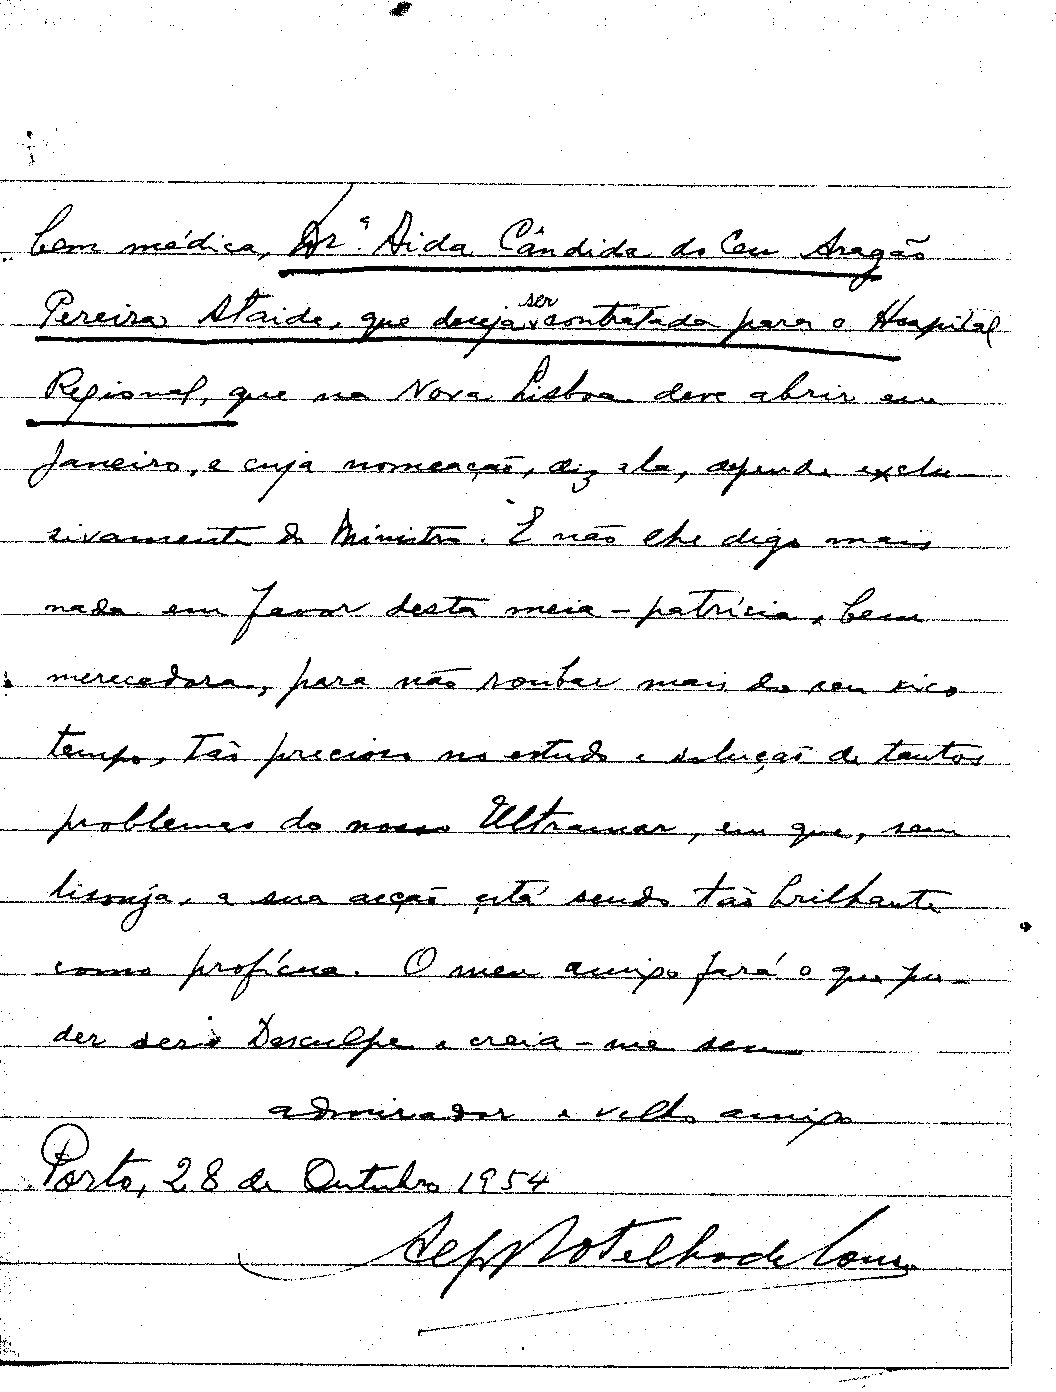 bem médica, Dr.ª Aida Cândida do Ceu Aragão
Pereira Ataide, que deseja ser contratada para o Hospital
Regional, que na Nova Lisboa deve abrir em
Janeiro, e cuja nomeação, diz ela, depende exclu-
sivamente do Ministro. E não lhe digo mais
nada em favor desta meia-patrícia, bem
merecedora, para não roubar mais do seu rico
tempo, tão precioso no estudo e solução de tantos
problemas do nosso Ultramar, em que, sem
lisonja, a sua acção está sendo tão brilhante
como profícua. O meu amigo fará o que pu-
der ser. Desculpe e creia-me seu
admirador e velho amigo
Porto, 28 de Outubro 1954
Botelho de